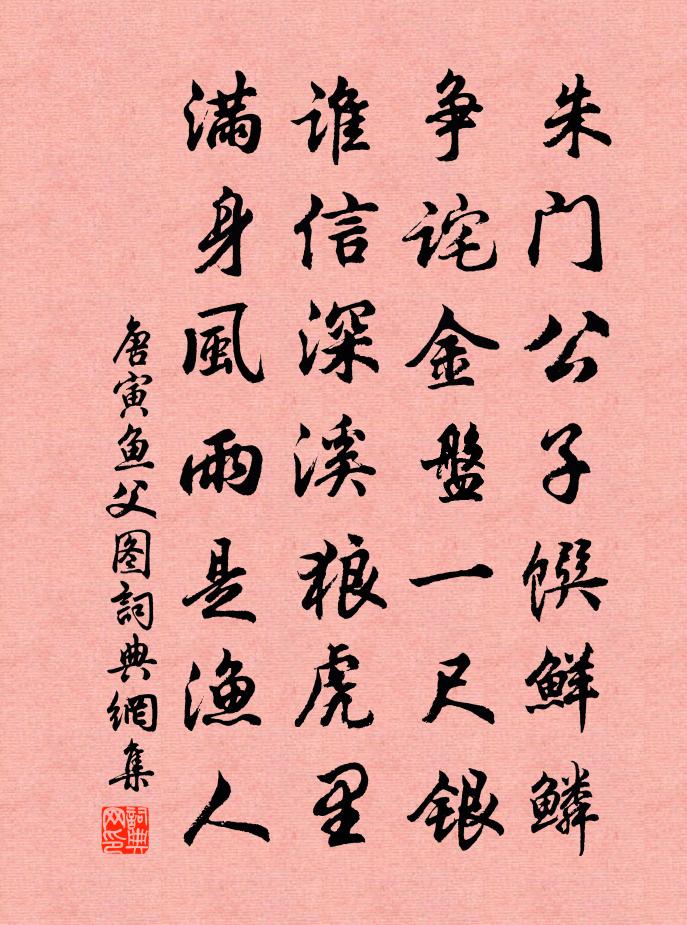 朱门公子馔鲜鳞
争诧金盘一尺银
谁信深溪狼虎里
满身風雨是渔人
唐寅鱼父图詞典網集
詞典网印